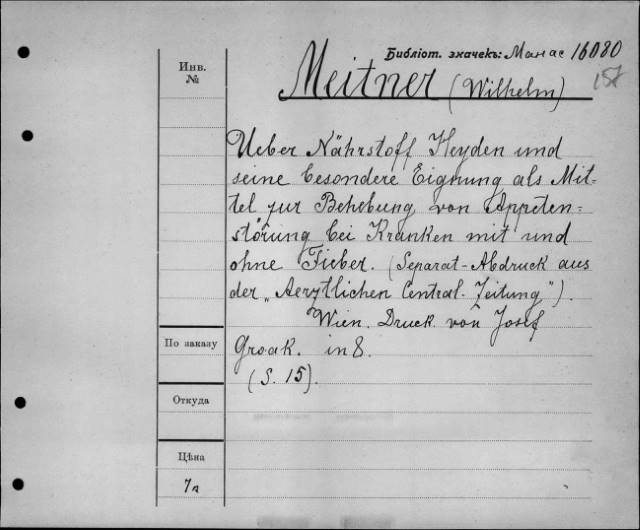 Библіот. значекъ: Манас 16080
Инв.
№
Meitner (Wilhelm)
Ueber Nährstoff Heyden und
seine besondere Eignung als Mit-
tel zur Behebung von Appeten-
störung bei Kranken mit und
ohne Fieber. (Separat-Abdruck aus
der „Aerztlichen Central-Zeitung").
Wien. Druck von Josef
По заказу
Groak. in 8.
(S. 15).
Откуда
Цѣна